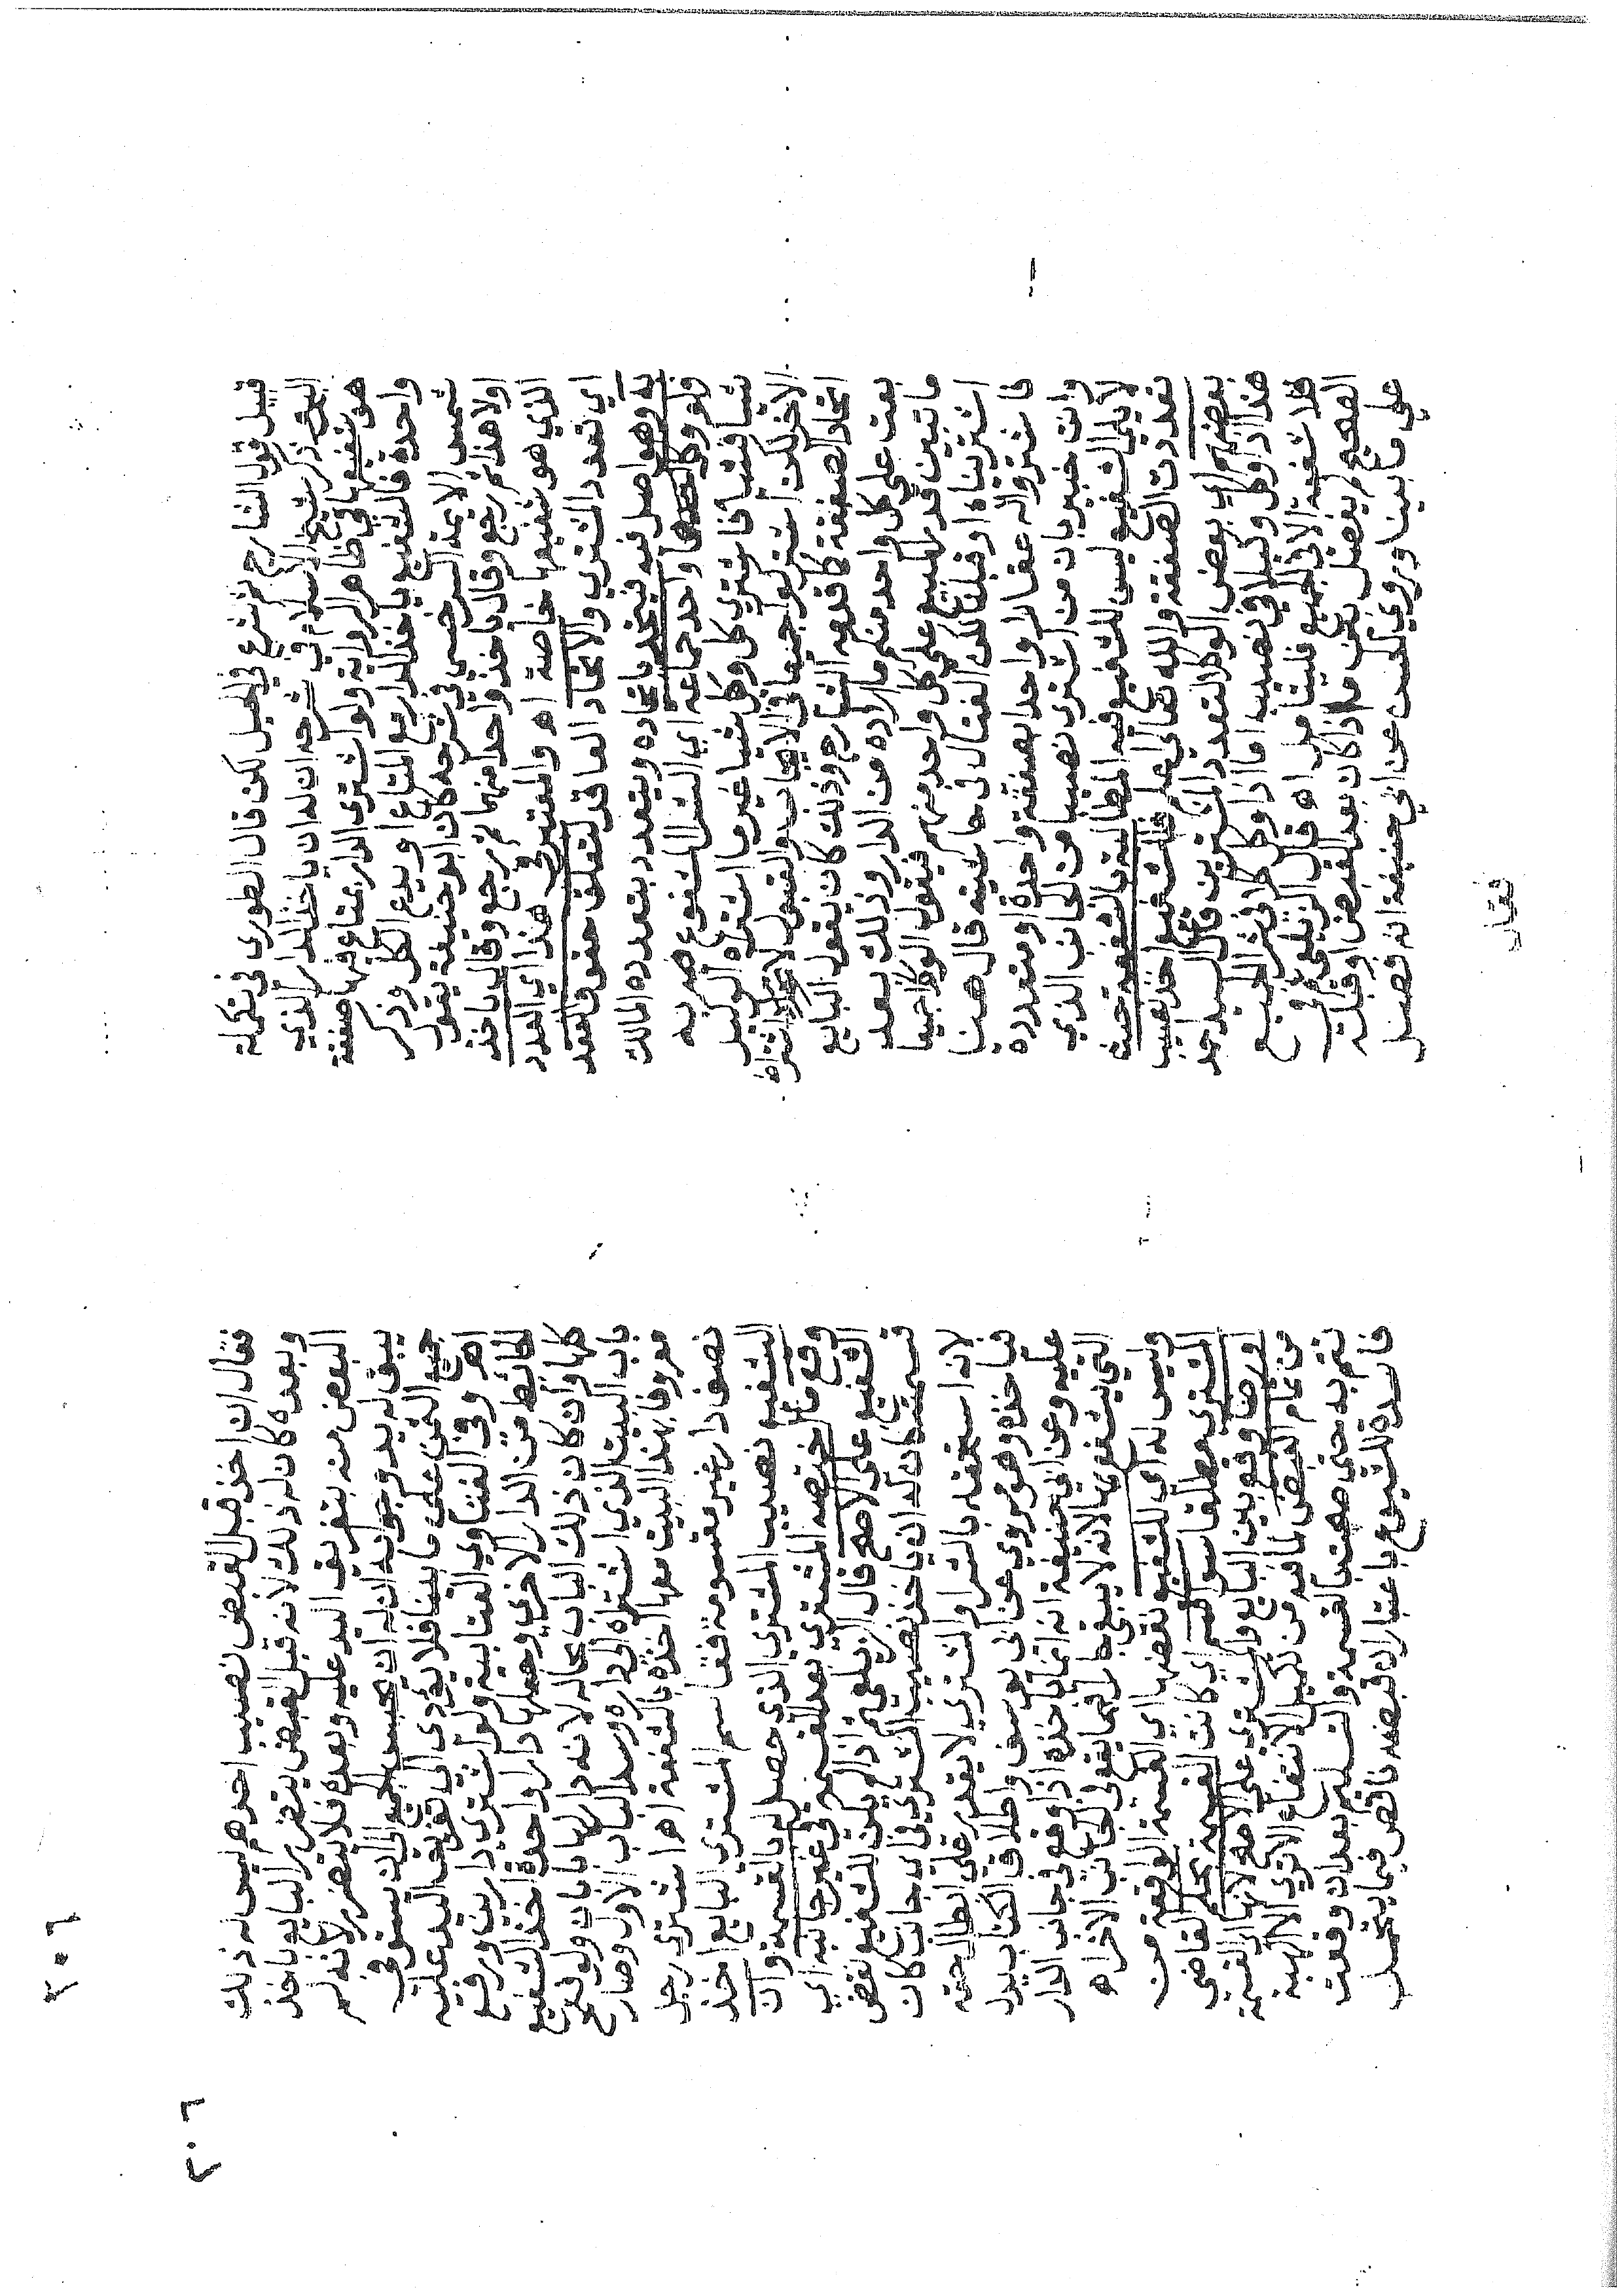 قبيل قول الشارح ثم شرع في الحيل لكن قال الطوري في تكملة
البحر ذكر شيخ الاسلام في شرحه ان له ان ياخذ الدار الذي
هو شفيعها في ظاهر الرواية ولو اشترى الدار بمتاع فيها صفقة
واحدة فالشفيع ياخذ الدار مع المتاع او يدع الكل وذكر
شمس الايمة السرخسي في شرحه كان ابو حنيفة يقول
اولا هذا ثم رجع وقال ياخذ واحدا منهما ثم رجع وقال ياخذ
الذي هو شفيعها خاصة اه والمعتبر في هذا اي العدد
اي تعدد المشتري والاتحاد العاقد لتعلق حقوق العقد
به وهو اصل فيه فيتحد باتحاده ويتعدد بتعدده المالك
فلو وكل واحد جماعة اي الشرا المشفوع به
شيا فشيا فاشترى كل وكل شيا غير ما اشتراه الوكيل
الاخر لكن اشتركوا جميعا في الايجاب والقبول
اتحاد الصفقة كما قدمه الشارح وذلك كان يقول البايع
بعت على كل واحد منكم ما اراده من الدار وذلك بعد
ما تبين قدر المبيع على كل واحد منهم فيقول الوكلا جميعا
اشتريناه او قبلنا لكن القتال في حاشيته قال هنا
فاشتروا له عقارا واحدا بصفقة واحدة او متعددة
وانت خبير بان من اشترى نصيبا من الجانب الذي
لا يلي الشفيع ليس للشفيع فيه المطالبة بالشفعة حيث
تعددت الصفقة والله تعالى اعلم فللشفيع اخذ نصيب
بعضهم اي بعض الوكلا لتعدد المشترين قال السيد احمد
هذا اذا وكل وكيلا في نصيب اما اذا وكل كلا في شرا المبيع
فلا شفعة الا في الجميع فليتامل اه قال الزيلعي ثم في
الصحيح لم يفصل بين ما اذا كان بعد القبض او قبله
على ما بينا وروي الحسن عن ابي حنيفة انه فصل
فقال
فقال ان اخذ قبل القبض نصيب احدهم ليس له ذلك
وبعده كان له ذلك لانه قبل القبض يتضرر البايع باخذ
البعض منه بتفريق اليد عليه وبعده لا يتضرر لانه لم
يبق له يد وجوابه ان له ان يحبس الجميع الى ان يستوفي
جميع الثمن على ما بينا فلا يؤدي الى تفريق اليد عليه
اه وفي الفتاوي العتابية ولو اشترى دارين ورفع
الحائط من الدار الاخرى وجعلها دارا واحدة اخذ الشفيع
كلها وان كان ذلك الباب بحاله لانه دار لها بابان ولو فتح
باب البيت الذي اشتراه الى داره وسد الباب الاول وصار
معروفا بهذا البيت معها اخذه بالشفعة اه اشترى رجل
نصف دار غير مقسومة فقاسم المشتري البايع اخذ
الشفيع نصيب المشتري الذي حصل له بالقسمة وان
وقع ما اختصه المشتري بعد القسمة في غير جانبه اي
الشفيع على الاصح قال الزيلعي ثم اذا لم يكن للشفيع نقض
قسمته كان له ان ياخذ نصيب المشتري في اي جانب كان
لانه استحقه بالشرا والمشتري لا يقدر على ابطال حقه
فياخذه وهو مروي عن ابي يوسف واطلاق الكتاب يدل
عليه وعن ابي حنيفة انه انما ياخذه اذا وقع في جانب الدار
التي يشفع بها لانه لا يبقى جارا فيما يقع في الجانب الاخر اه
وليس له اي للشفيع نقضها اي القسمة الواقعة من
المشتري مطلقا سوا قسم اي كانت القسمة بحكم القاضي
او رضا وقع بين البايع والمشتري على الاصح لانها اي القسمة
من تمام القبض لما فيه من تكميل الانتفاع الا ترى الا الهبة
تتم به حتى صحت القسمة والتسليم بعد ان وقعت
فاسدة للشيوع باعتبار ان قبضه ناقص فيما يحتمل
٢٠٦